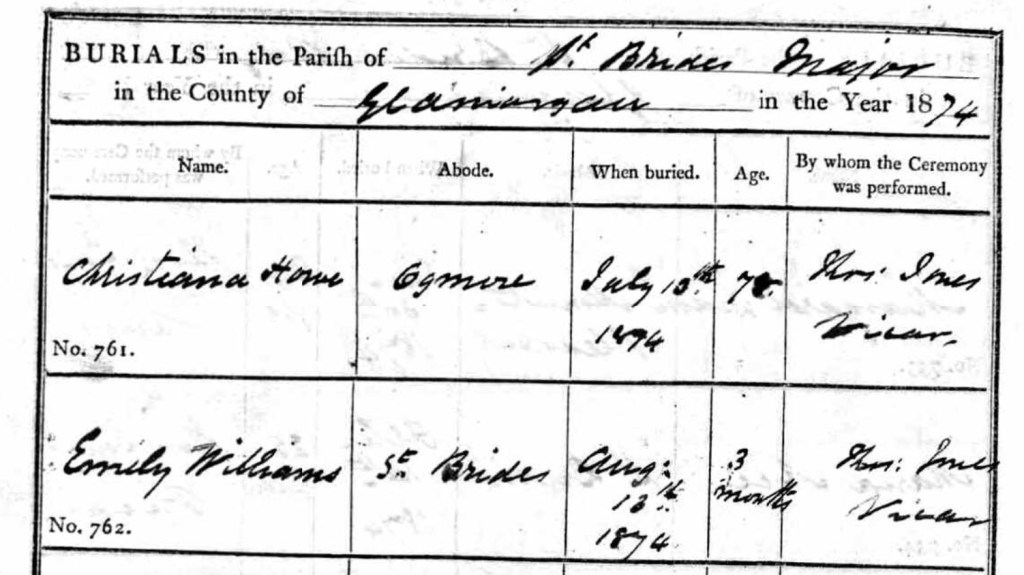 BURIALS in the Parish of St. Brides Major
in the County of Glamorgan in the Year 1874
Name. Abode. When buried. Age. By whom the Ceremony was performed.
Christiana Howe Ogmore July 13th 1874 Thos: Jones Vicar.
No. 761.
Emily Williams St. Brides Aug: 13th 1874 3 months Thos: Jones Vicar
No. 762.